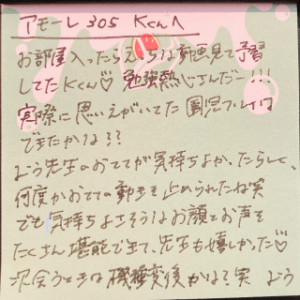 アモーレ305 Kくんへ
お部屋入ったらえっちな動画見て予習
してたKくん♡ 勉強熱心さんだー!!!
実際に思いえがいてた園児プレイは
できたかな??
よう先生のおててが気持ちよかったらしく、
何度かおてての動きを止められたね笑
でも気持ちよさそうなお顔とお声を
たくさん堪能できて、先生も嬉しかった♡
次会うときは機種変後かな?笑 よう